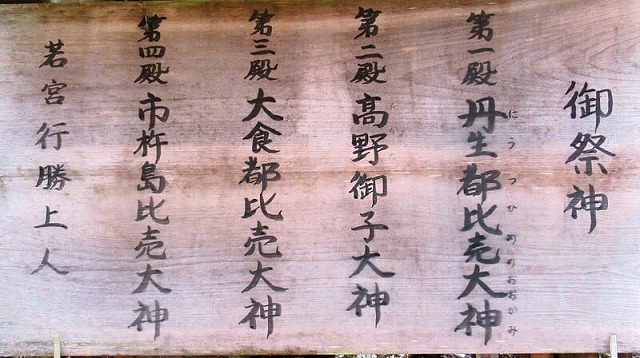 御祭神
第一殿 丹生都比売大神
にうつひめのおおかみ
第二殿 高野御子大神
第三殿 大食都比売大神
第四殿 市杵島比売大神
若宮 行勝上人